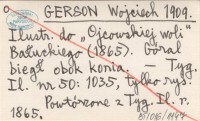 GERSON Wojciech 1909.
Ilustr. do „Ojcowskiej woli"
Bałuckiego (1865). Góral
biegł obok konia. — Tyg.
Il. nr 50: 1035, tylko rys.
Powtórzone z Tyg. Il. r.
1865.